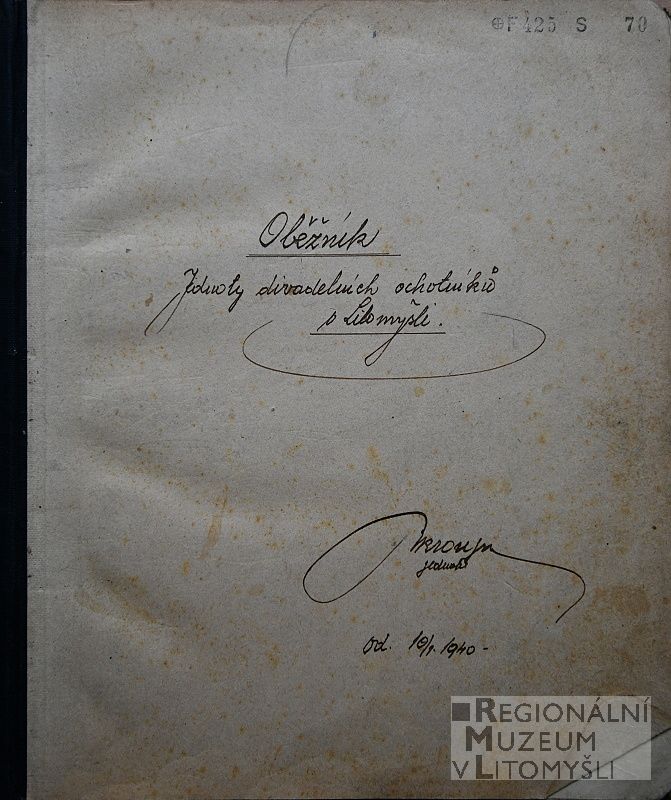 ⊕F425 S 70
Oběžník
Jednoty divadelních ochotníků
v Litomyšli.
jednatel
od. 10/1. 1940 -
REGIONÁLNÍ
MUZEUM
V LITOMYŠLI